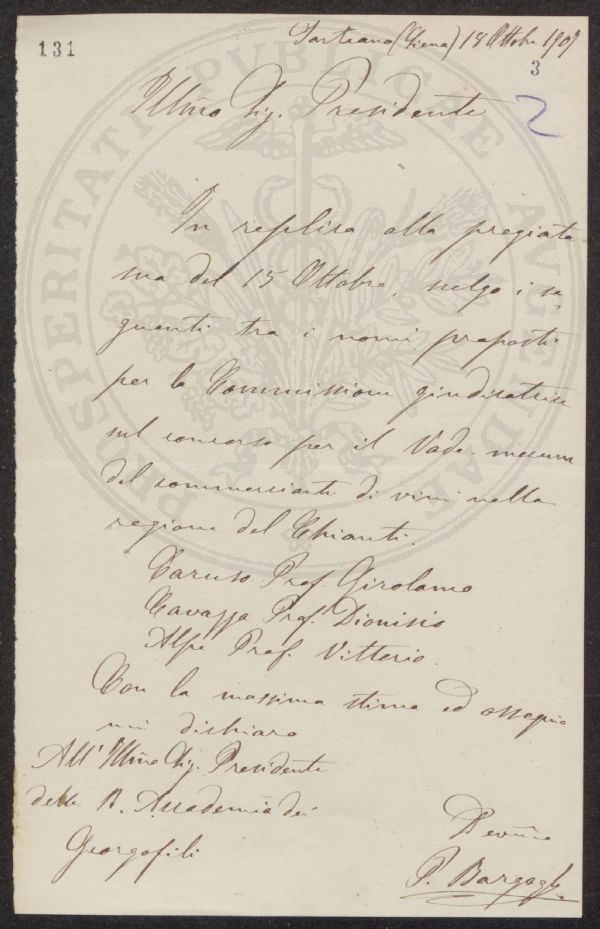 131
Sarteano (Siena) 18 Ottobre 1907
3
2
Illmo Sig. Presidente
In replica alla pregiata
sua del 15 Ottobre, scelgo i se
guenti tra i nomi proposti
per la Commissione giudicatrice
sul concorso per il Vade-mecum
del commerciante di vini nella
regione del Chianti.
Caruso Prof. Girolamo
Cavazza Prof. Dionisio
Alpe Prof. Vittorio.
Con la massima stima ed ossequio
mi dichiaro
All' Illmo Sig. Presidente
della R. Accademia dei
Georgofili
Devmo
P. Bargagli
PROSPERITATI PUBLICAE AUGENDAE